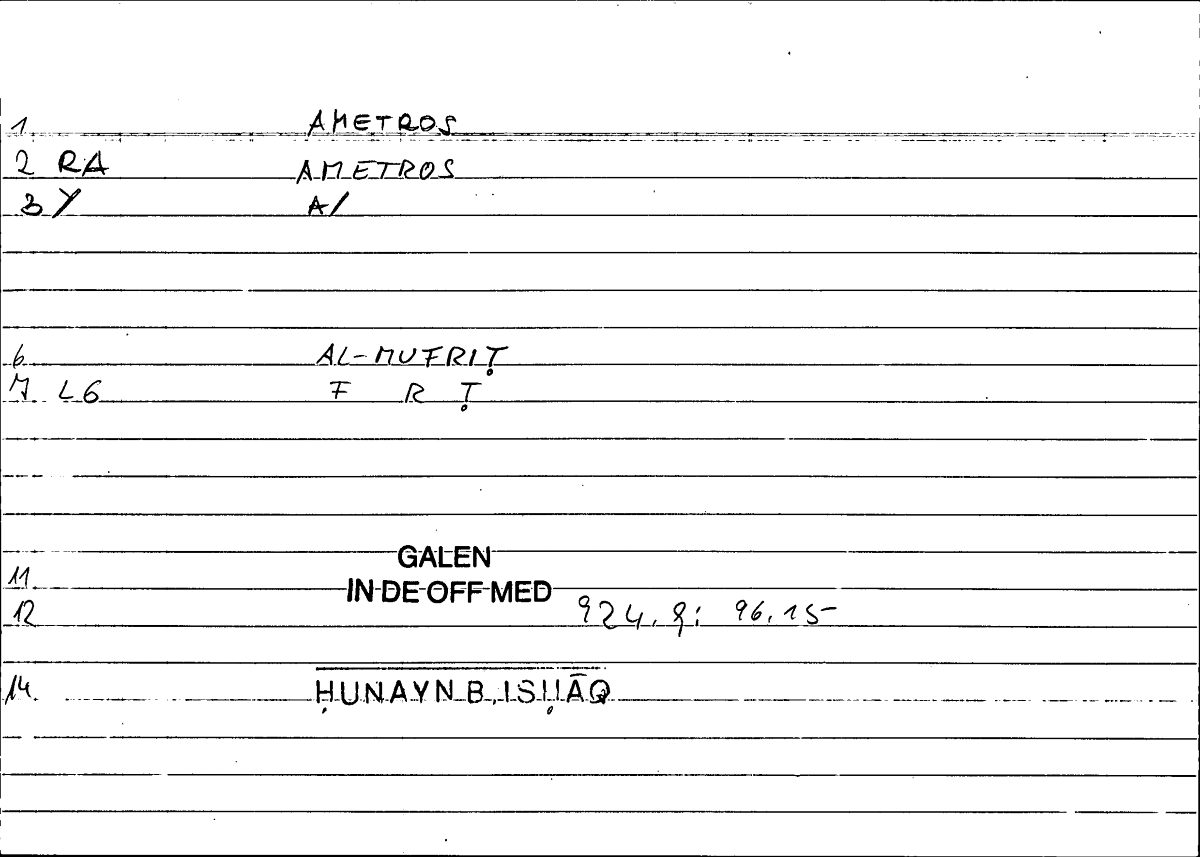 1 AMETROS
2 RA AMETROS
3 Y A/
6 AL-MUFRIṬ
7 L6 F R Ṭ
GALEN
11 IN DE OFF MED
12 924.9; 96.15
14 ḤUNAYN B. ISḤĀQ